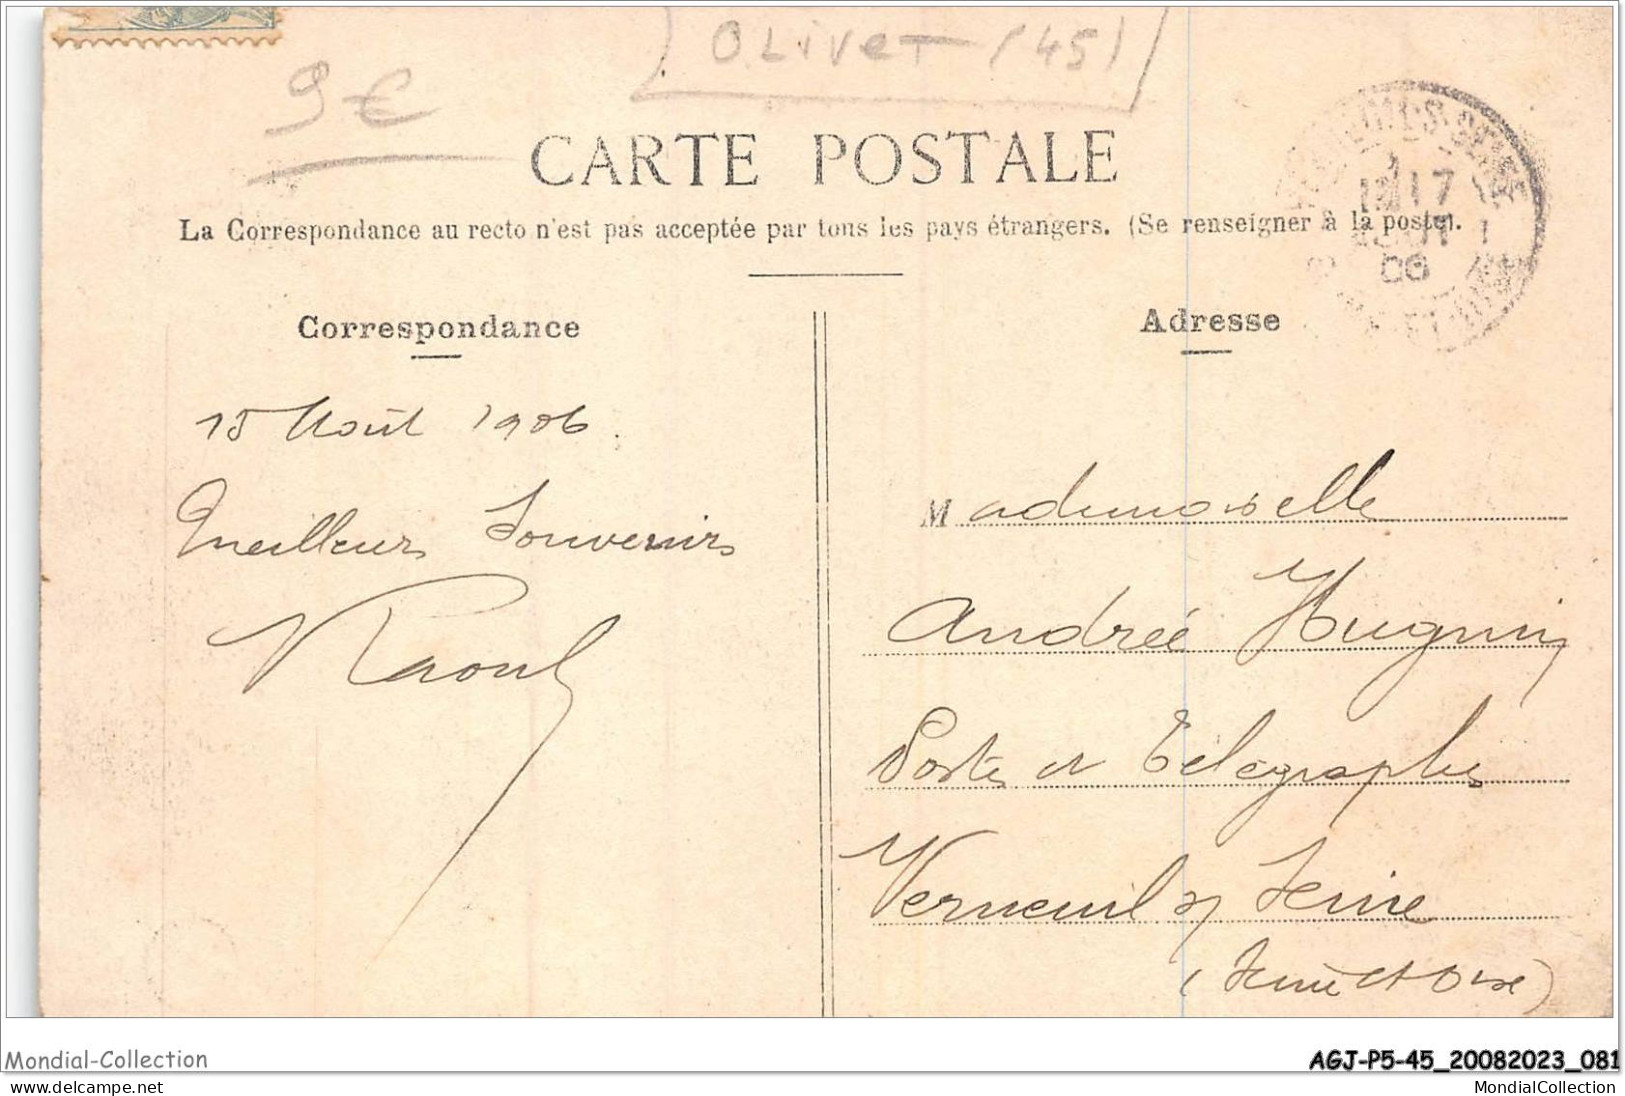 OLIVET (45)
9€
CARTE POSTALE
La Correspondance au recto n'est pas acceptée par tous les pays étrangers. (Se renseigner à la poste).
17
06
Correspondance
15 Août 1906.
Meilleurs Souvenirs
Raoul
Adresse
Mademoiselle
Andrée Hugnin
Postes et Télégraphes
Verneuil s/ Seine
(Seine et Oise)
Mondial-Collection
www.delcampe.net
AGJ-P5-45_20082023_081
MondialCollection